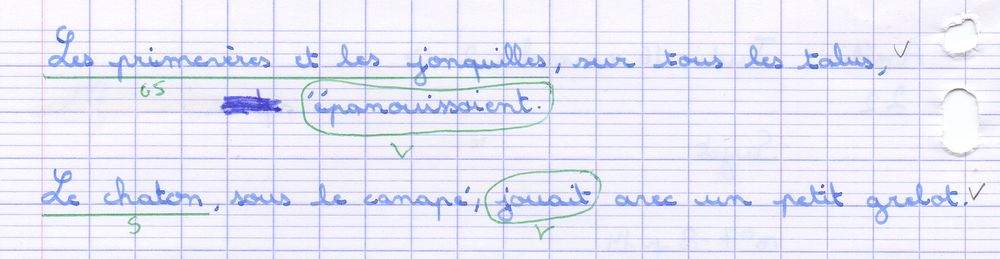 Les primevères et les jonquilles, sur tous les talus, v
GS
'épanouissaient.
V
Le chaton, sous le canapé, jouait avec un petit grelot. v
S
V